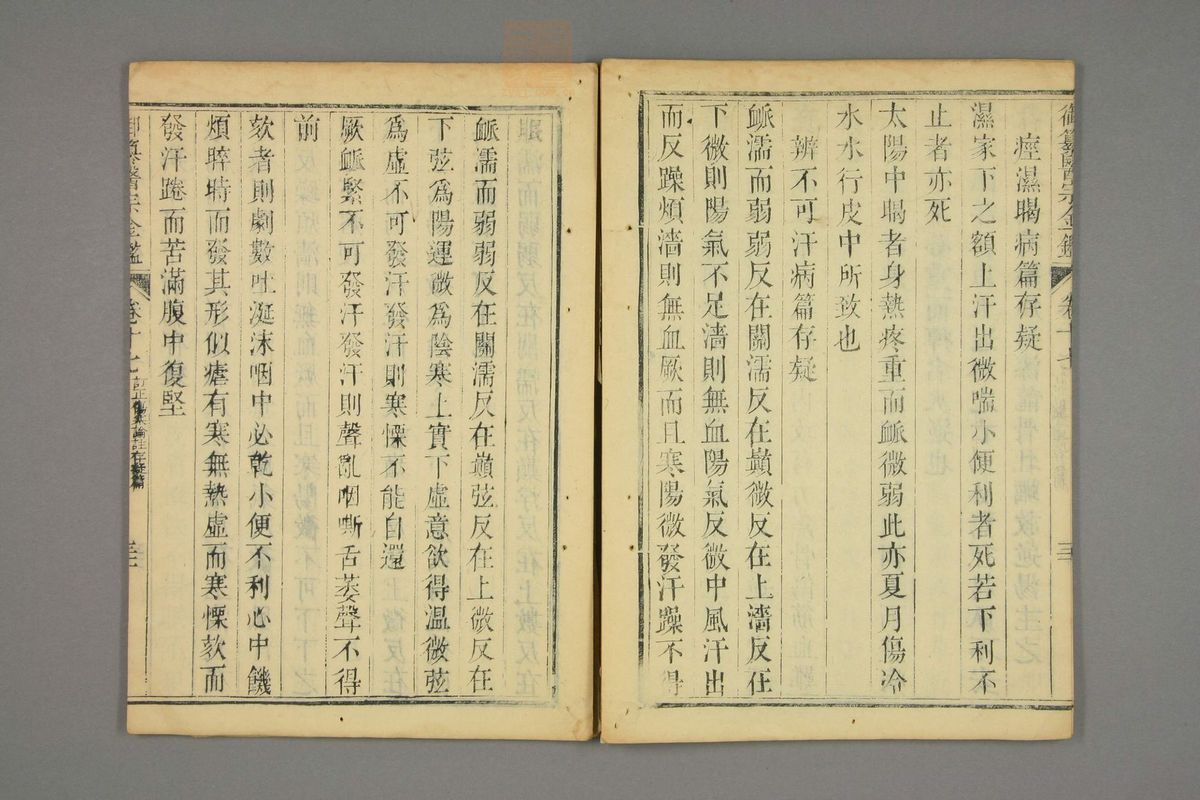 御纂醫宗金鑑 卷十七
痙濕暍病篇存疑
濕家下之額上汗出微喘小便利者死若下利不
止者亦死
太陽中暍者身熱疼重而脈微弱此亦夏月傷冷
水水行皮中所致也
辨不可汗病篇存疑
脈濡而弱弱反在關濡反在巔微反在上濇反在
下微則陽氣不足濇則無血陽氣反微中風汗出
而反躁煩濇則無血厥而且寒陽微發汗躁不得
眠
脈濡而弱弱反在關濡反在巔弦反在上微反在
下弦為陽運微為陰寒上實下虛意欲得溫微弦
為虛不可發汗發汗則寒慄不能自還
厥脈緊不可發汗發汗則聲亂咽嘶舌萎聲不得
前
欬者則劇數吐涎沫咽中必乾小便不利心中饑
煩晬時而發其形似瘧有寒無熱虛而寒慄欬而
發汗踡而苦滿腹中復堅
御纂醫宗金鑑 卷十七 訂正傷寒論註存疑篇